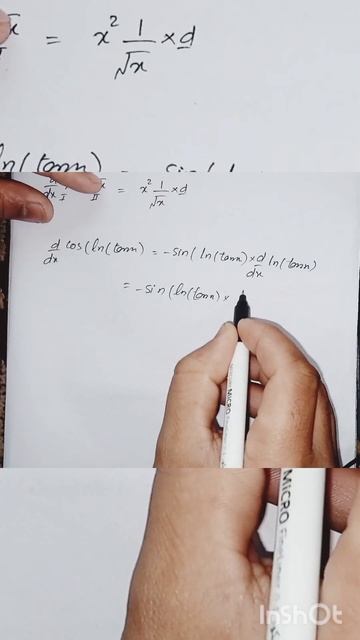 = x² 1/√x × d
ln(tanx) = -sin(
d/dx I II = x² 1/√x × d
d/dx cos(ln(tanx) = -sin(ln(tanx) × d/dx ln(tanx)
= -sin(ln(tanx) ×
MICRO
MICRO
InShOt